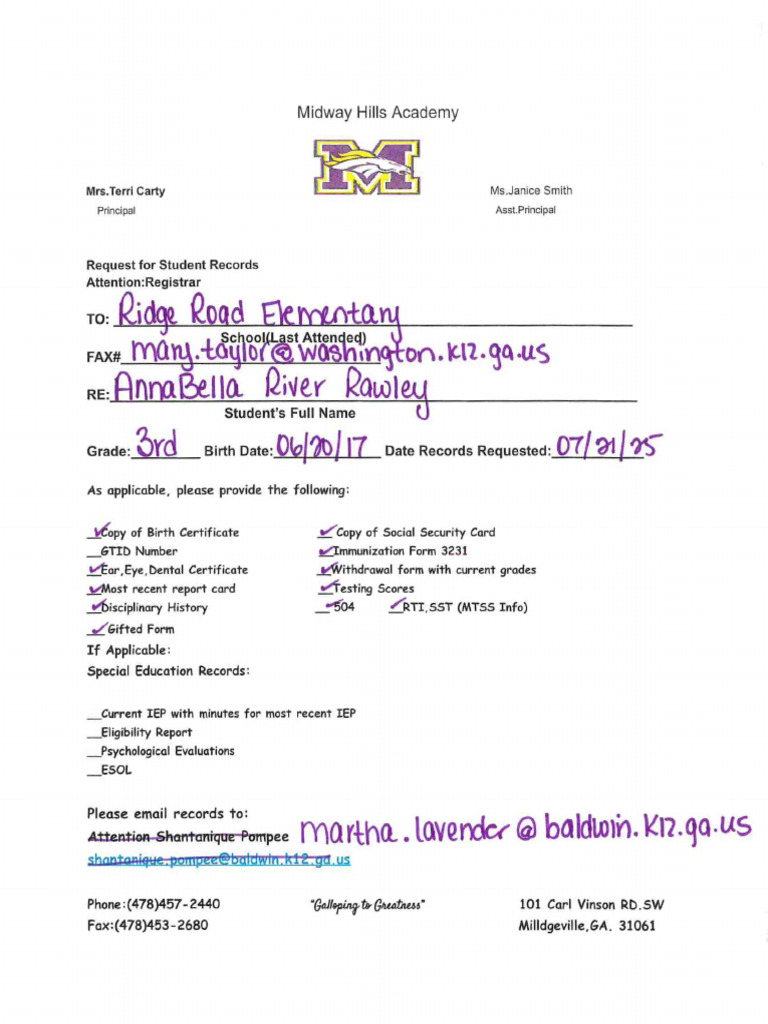 Midway Hills Academy
M
Mrs.Terri Carty Ms.Janice Smith
Principal Asst.Principal
Request for Student Records
Attention:Registrar
TO: Ridge Road Elementary
School(Last Attended)
FAX# mary.taylor@washington.k12.ga.us
RE: AnnaBella River Rawley
Student's Full Name
Grade: 3rd Birth Date: 06/20/17 Date Records Requested: 07/21/25
As applicable, please provide the following:
✓Copy of Birth Certificate ✓Copy of Social Security Card
__GTID Number ✓Immunization Form 3231
✓Ear,Eye,Dental Certificate ✓Withdrawal form with current grades
✓Most recent report card ✓Testing Scores
✓Disciplinary History ✓504 ✓RTI,SST (MTSS Info)
✓Gifted Form
If Applicable:
Special Education Records:
__Current IEP with minutes for most recent IEP
__Eligibility Report
__Psychological Evaluations
__ESOL
Please email records to:
Attention Shantanique Pompee martha.lavender@baldwin.k12.ga.us
shantanique.pompee@baldwin.k12.ga.us
Phone:(478)457-2440 "Galloping to Greatness" 101 Carl Vinson RD.SW
Fax:(478)453-2680 Milldgeville,GA. 31061